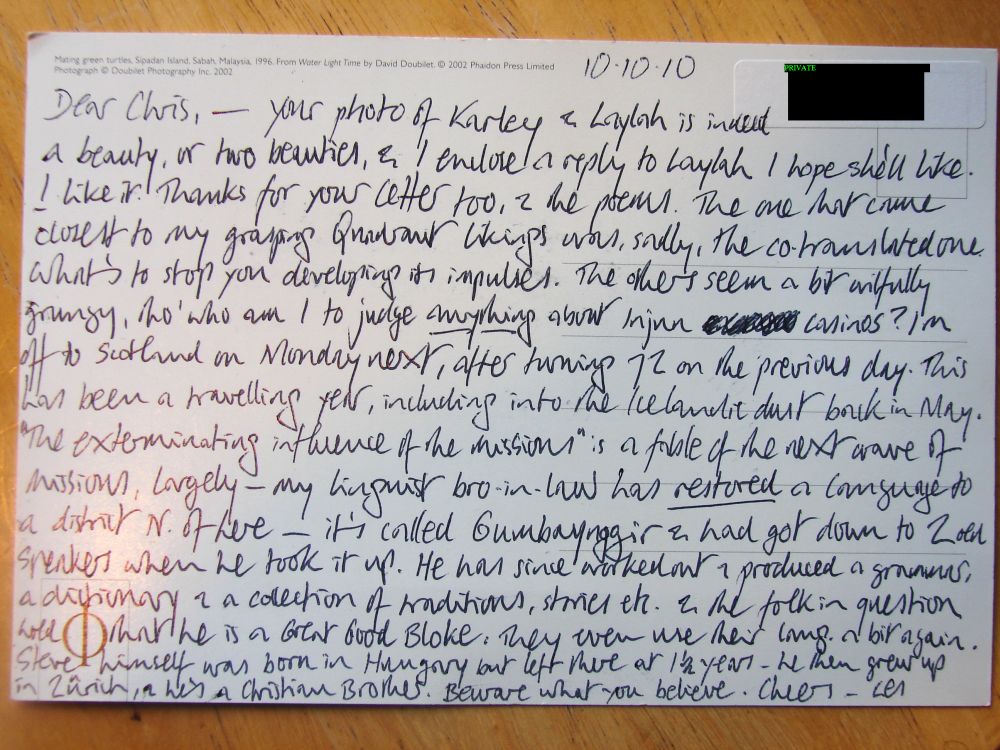 Mating green turtles, Sipadan Island, Sabah, Malaysia, 1996. From Water Light Time by David Doubilet. © 2002 Phaidon Press Limited
Photograph © Doubilet Photography Inc. 2002
10-10-10
PRIVATE
Dear Chris, — your photo of Karley & Laylah is indeed
a beauty, or two beauties, & I enclose a reply to Laylah I hope she'll like.
I like it. Thanks for your letter too, & the poems. The one that came
closest to my grasping Quadrant likings was, sadly, the co-translated one.
What's to stop you developing its impulses. The others seem a bit wilfully
grungy, tho' who am I to judge anything about Injun casinos? I'm
off to Scotland on Monday next, after turning 72 on the previous day. This
has been a travelling year, including into the Icelandic dust back in May.
"The exterminating influence of the missions" is a fable of the next wave of
missions, largely — my linguist bro-in-law has restored a language to
a district N. of here — it's called Gumbaynggir & had got down to 2 old
speakers when he took it up. He has since worked out & produced a grammar,
a dictionary & a collection of traditions, stories etc. & the folk in question
hold that he is a Great Good Bloke. They even use their lang. a bit again.
Steve himself was born in Hungary but left there at 1½ years - he then grew up
in Zürich, & he's a Christian Brother. Beware what you believe. Cheers — Les